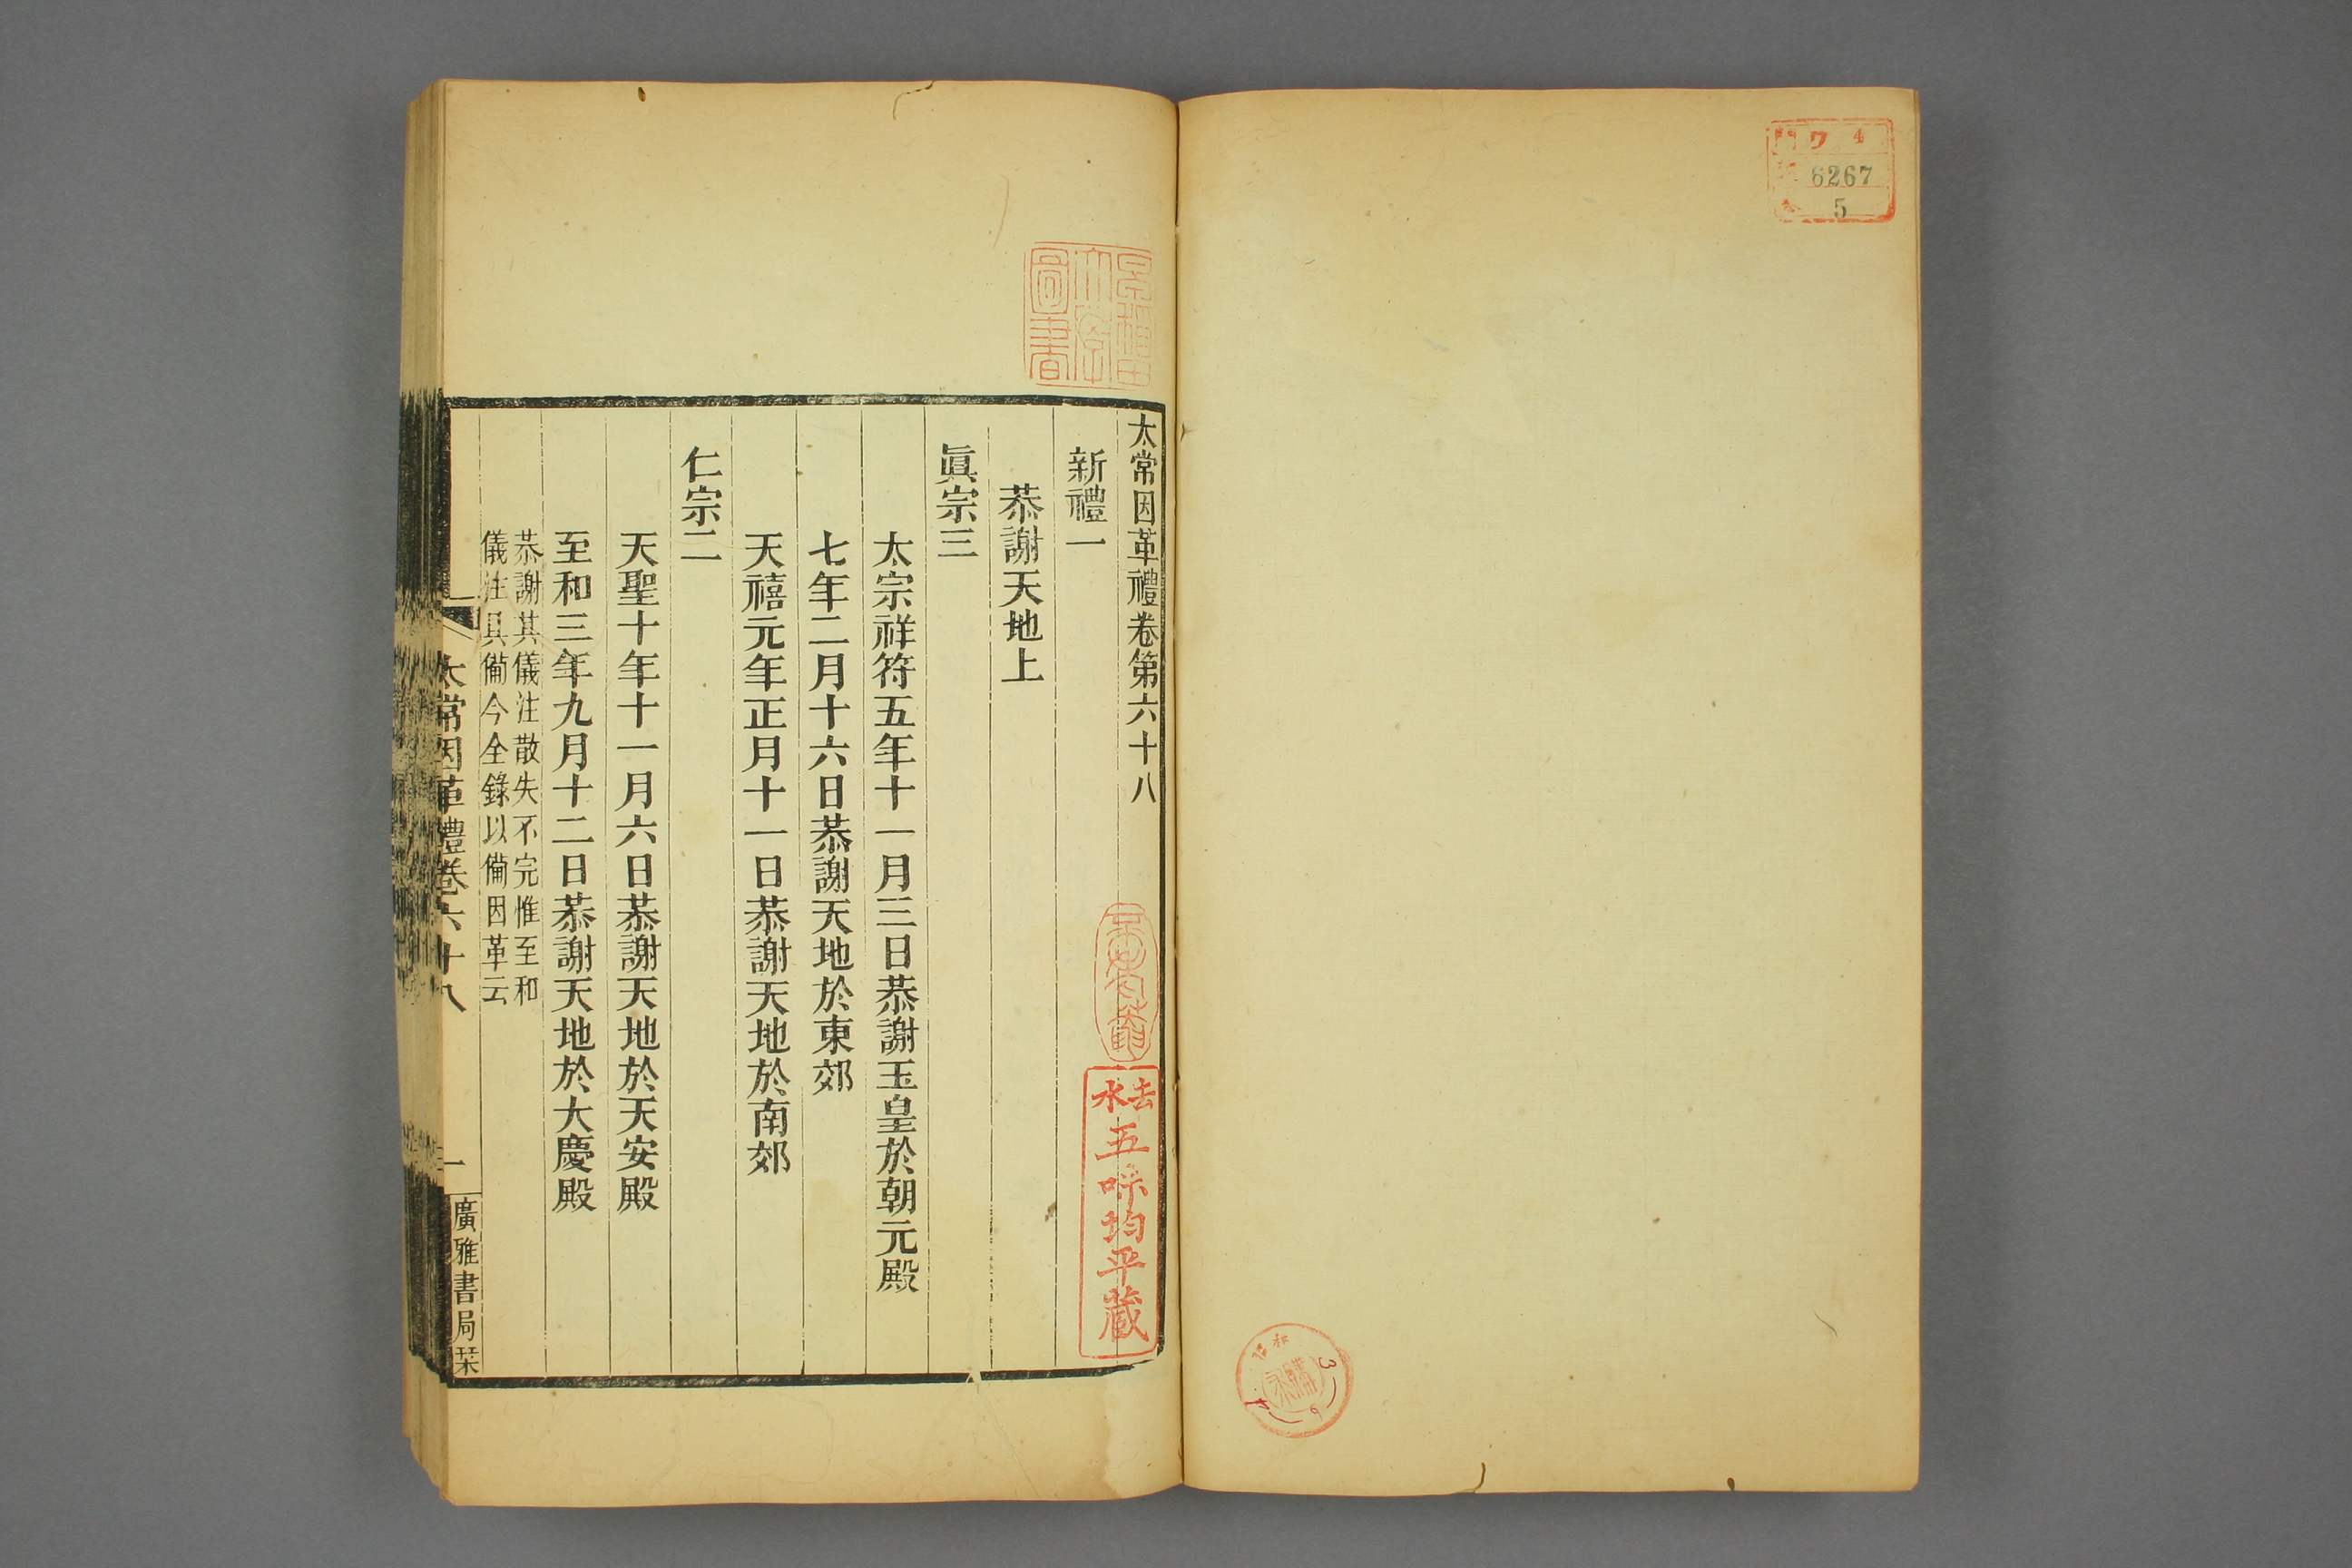 ワ 4
6267
5
太常因革禮卷第六十八
新禮一
恭謝天地上
眞宗三
太宗祥符五年十一月三日恭謝玉皇於朝元殿
七年二月十六日恭謝天地於東郊
天禧元年正月十一日恭謝天地於南郊
仁宗二
天聖十年十一月六日恭謝天地於天安殿
至和三年九月十二日恭謝天地於大慶殿
恭謝其儀注散失不完惟至和
儀注具備今全錄以備因革云
太常因革禮卷六十八
一
廣雅書局栞
早稲田
大學
圖書
去水
五味均平藏